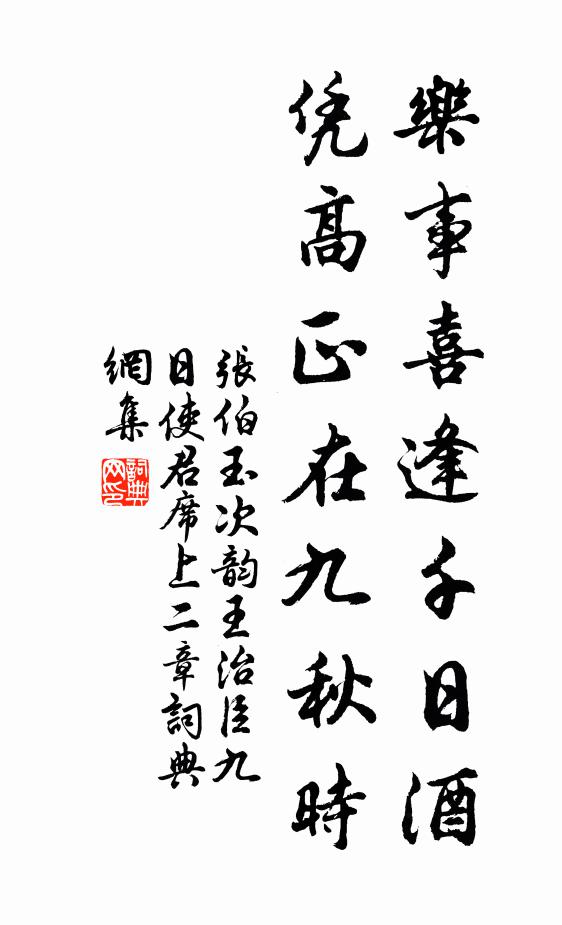 樂事喜逢千日酒
凭高正在九秋時
張伯玉次韵王治臣九
日使君席上二章詞典
網集
詞典網印